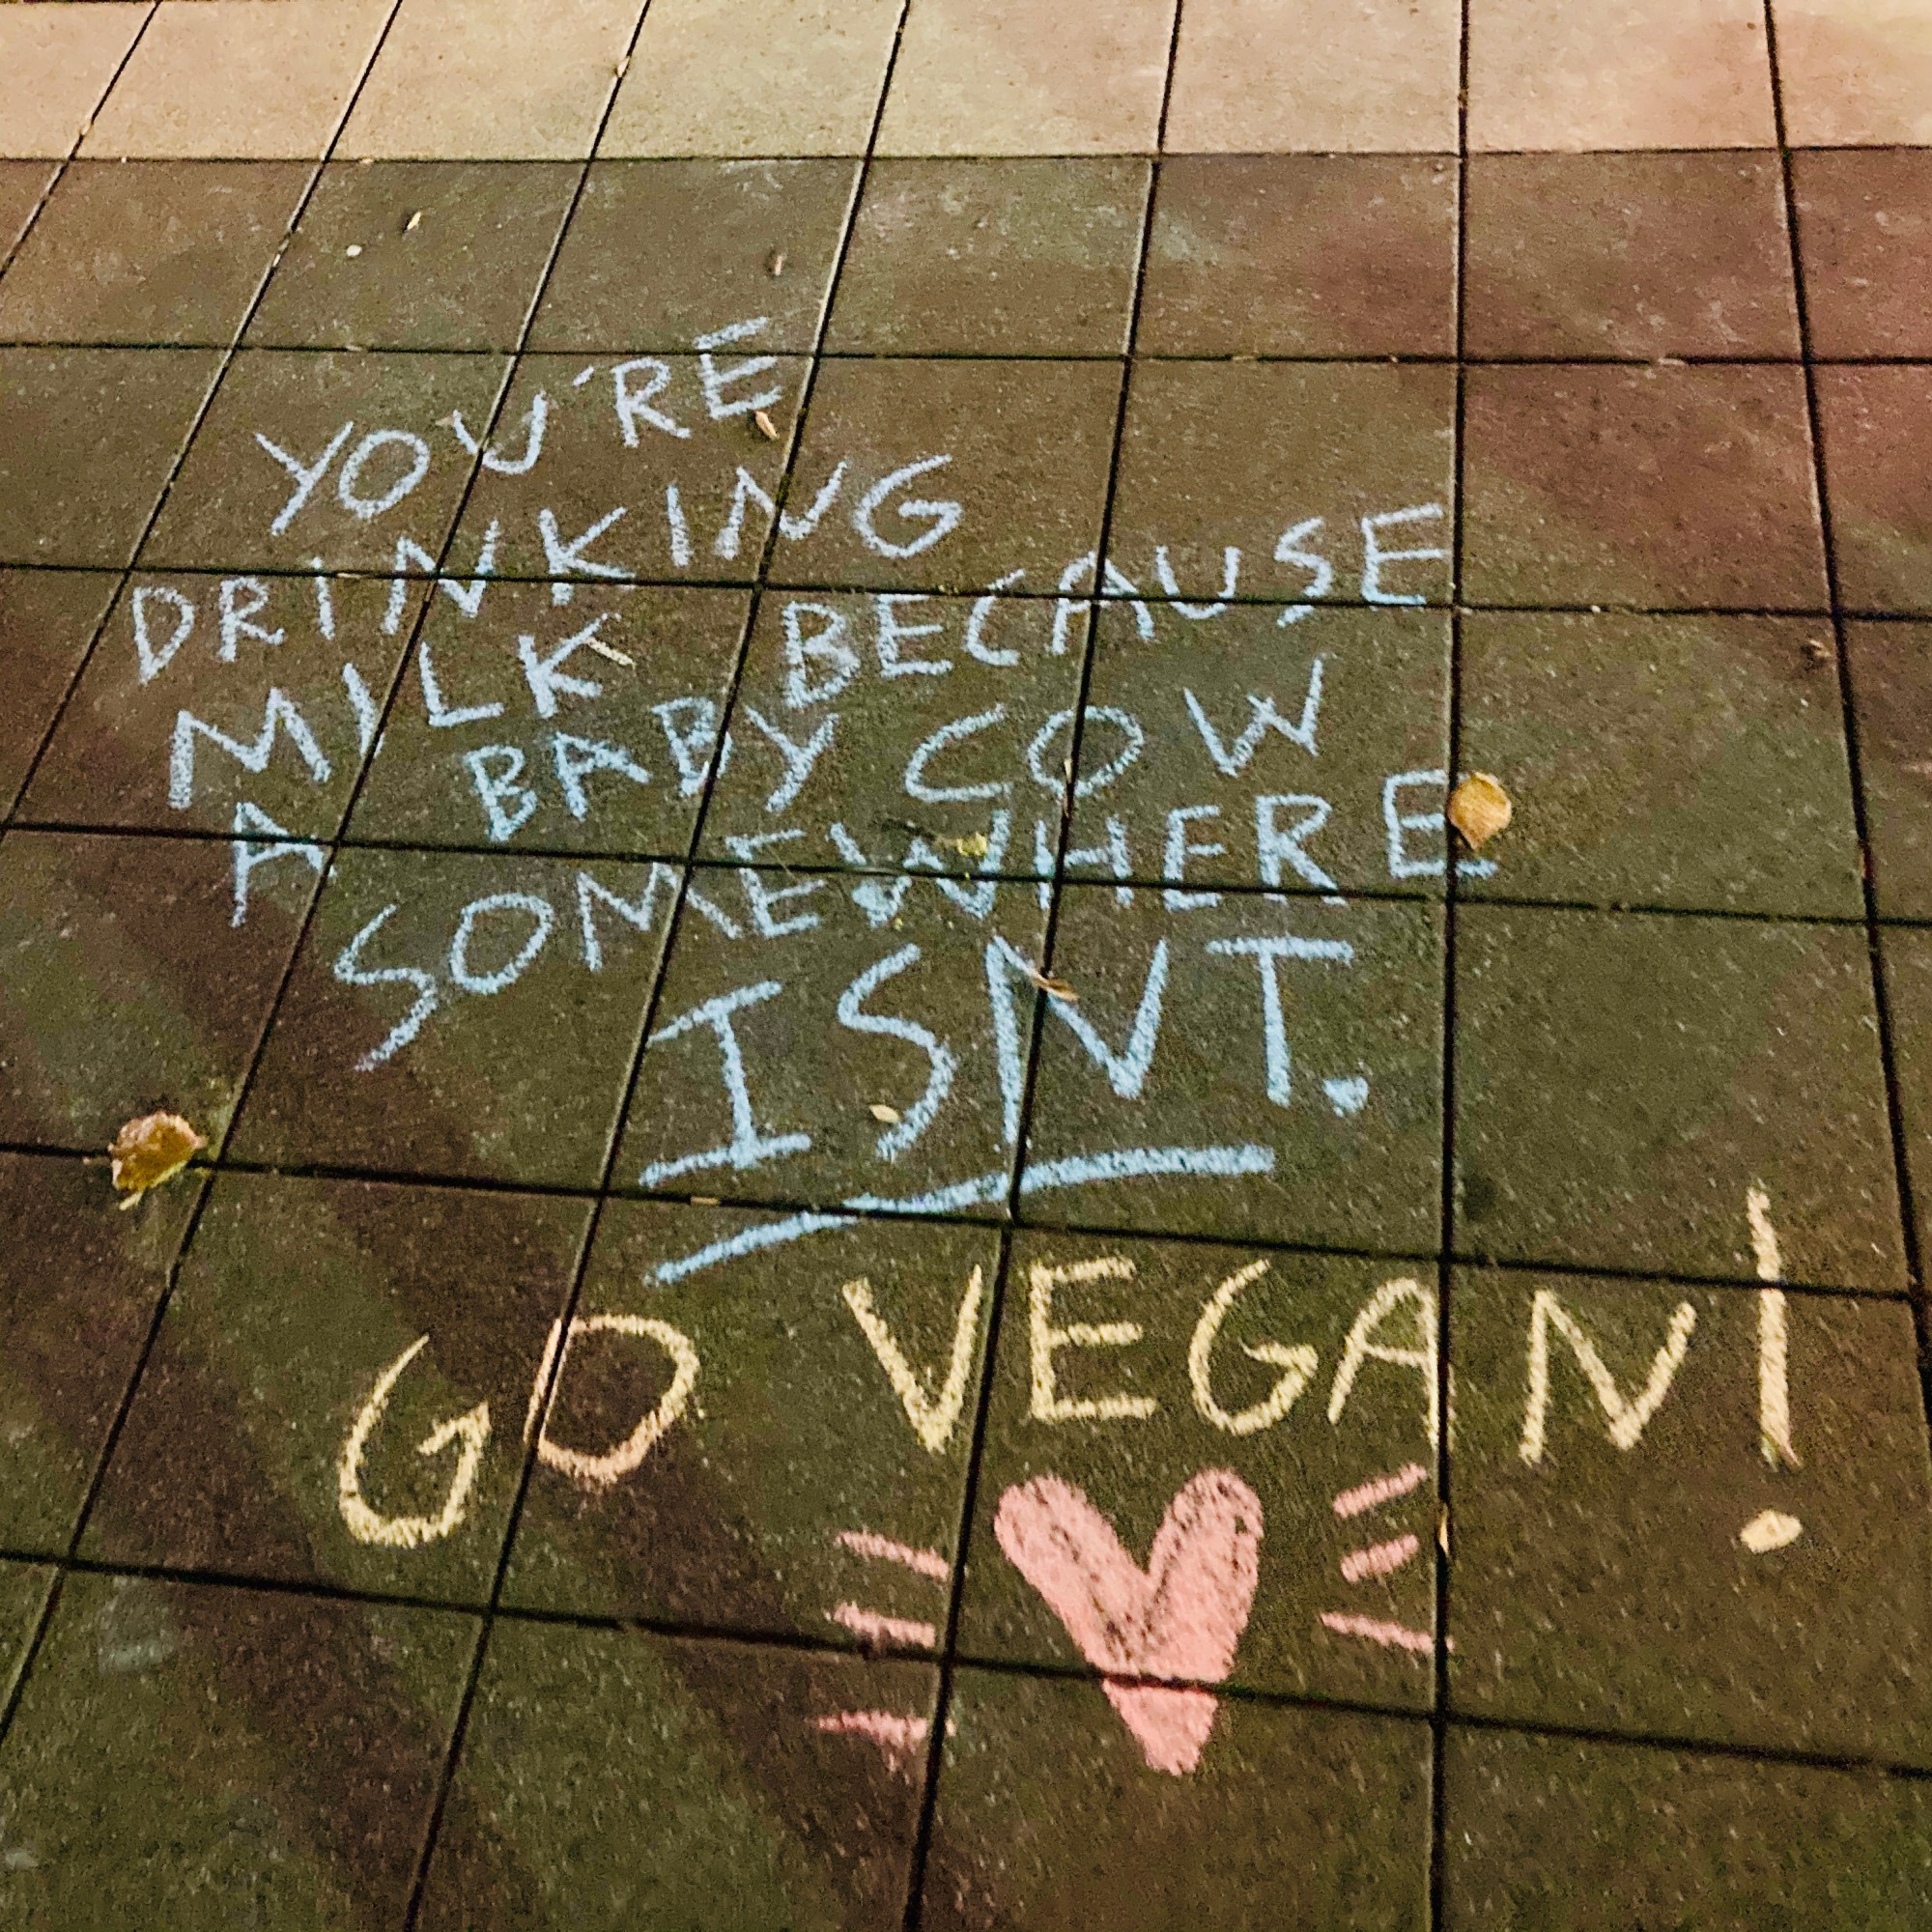 YOU'RE
DRINKING
MILK BECAUSE
A BABY COW
SOMEWHERE
ISNT.
GO VEGAN!